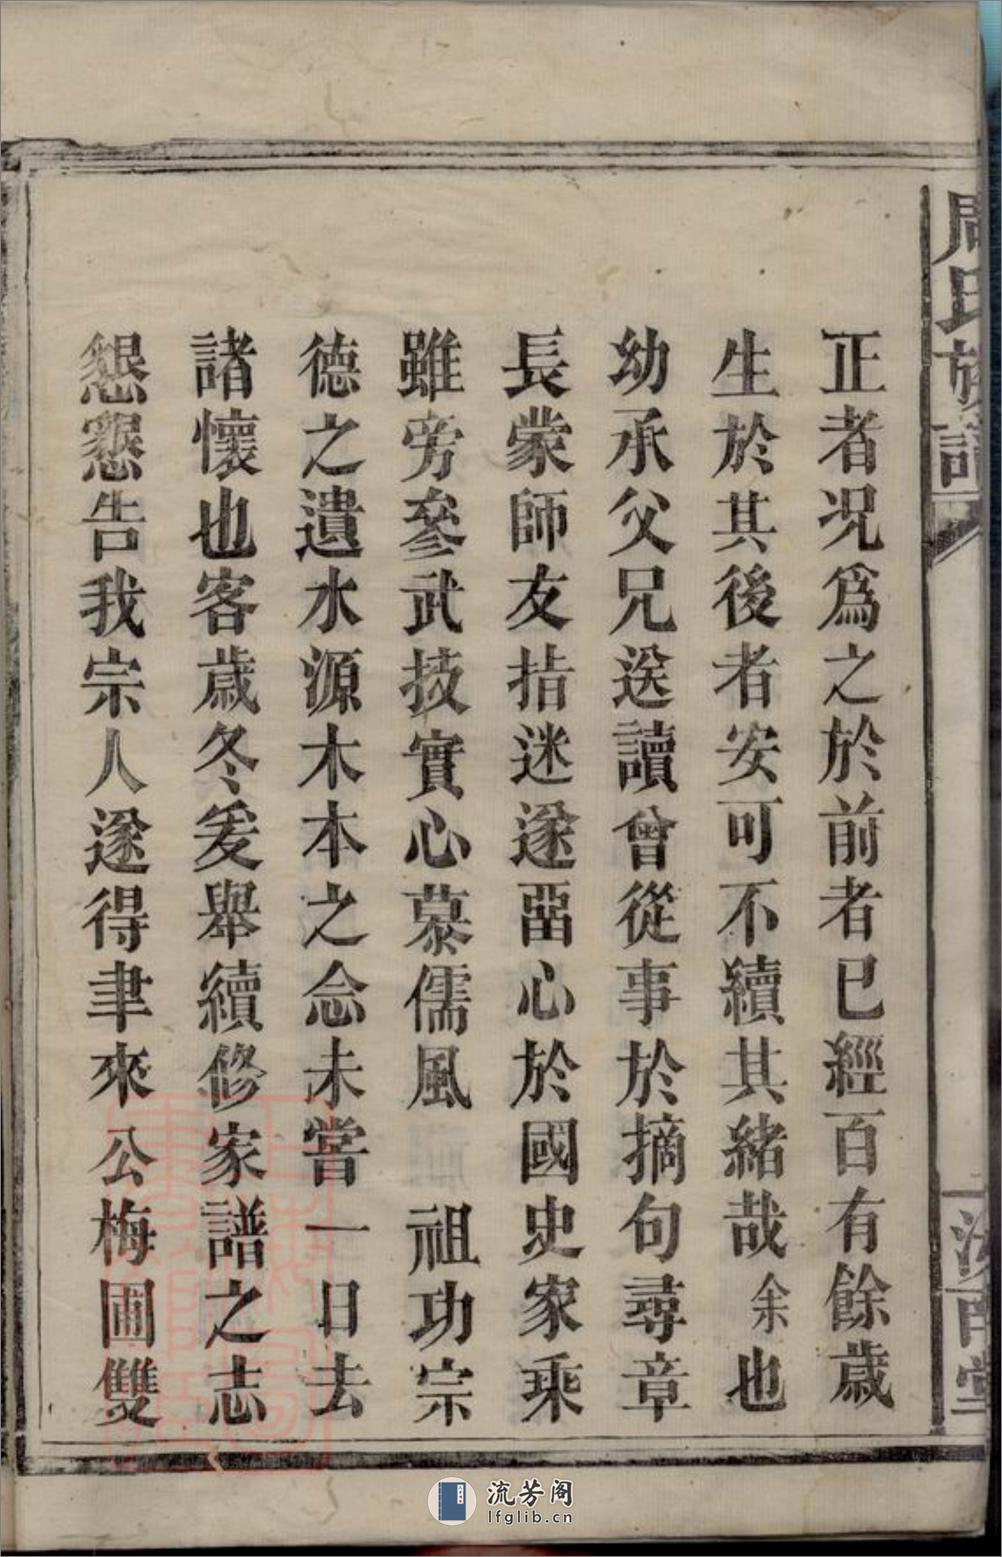 周氏族譜
正者況爲之於前者已經百有餘歲
生於其後者安可不續其緒哉余也
幼承父兄送讀曾從事於摘句尋章
長蒙師友指迷遂畱心於國史家乘
雖旁參武技實心慕儒風 祖功宗
德之遺水源木本之念未嘗一日去
諸懷也客歲冬爰舉續修家譜之志
懇懇告我宗人遂得聿來公梅圃雙
流芳阁
lfglib.cn